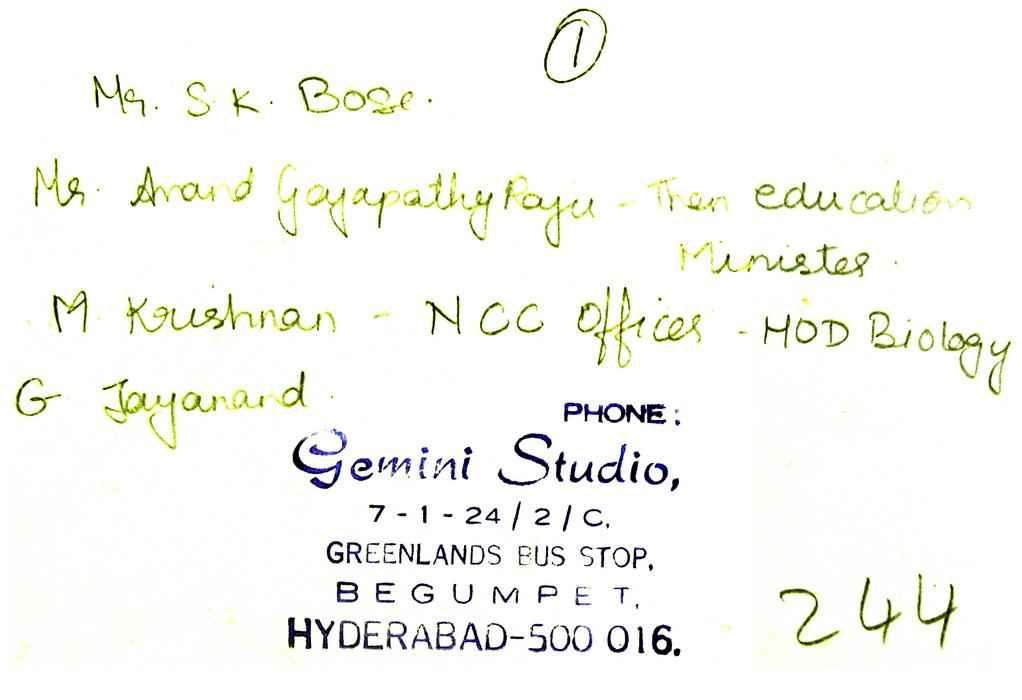 1
Mr. S. K. Bose.
Mr. Anand Gajapathy Raju - Then education
Minister.
M Krishnan - NCC Officer - HOD Biology
G Jayanand.
PHONE:
Gemini Studio,
7-1-24/2/C,
GREENLANDS BUS STOP,
BEGUMPET,
HYDERABAD-500 016.
244